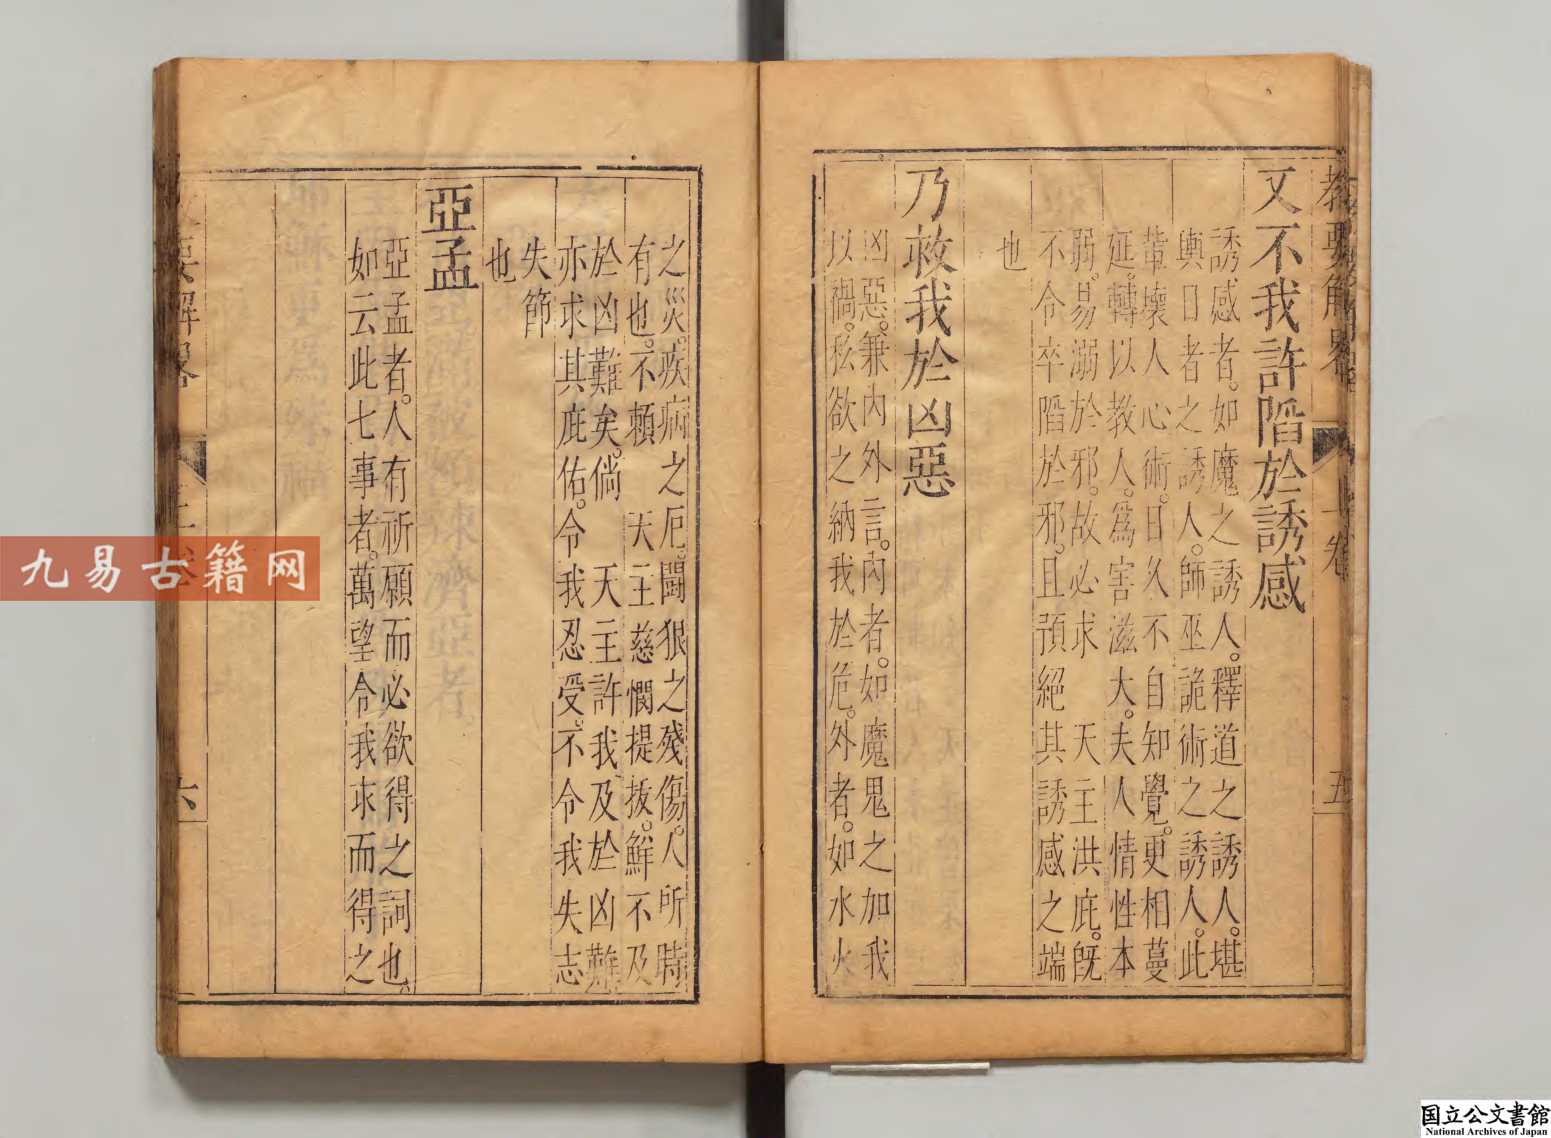 又不我許陷於誘感
誘感者。如魔之誘人。釋道之誘人。堪
輿日者之誘人。師巫詭術之誘人。此
輩壞人心術。日久不自知覺。更相蔓
延。轉以教人。爲害滋大。夫人情性本
弱。易溺於邪。故必求　天主洪庇。旣
不令卒陷於邪。且預絕其誘感之端
也
乃救我於凶惡
凶惡。兼內外言。內者。如魔鬼之加我
以禍。私欲之納我於危。外者。如水火
之災。疾病之厄。鬪狠之殘傷。人所時
有也。不賴　天主慈憫提拔。鮮不及
於凶難矣。倘　天主許我及於凶難
亦求其庇佑。令我忍受。不令我失志
失節
也
亞孟
亞孟者。人有祈願而必欲得之詞也。
如云此七事者。萬望令我求而得之
教要解畧
上卷
五
要解畧
上卷
六
九易古籍网
国立公文書館
National Archives of Japan